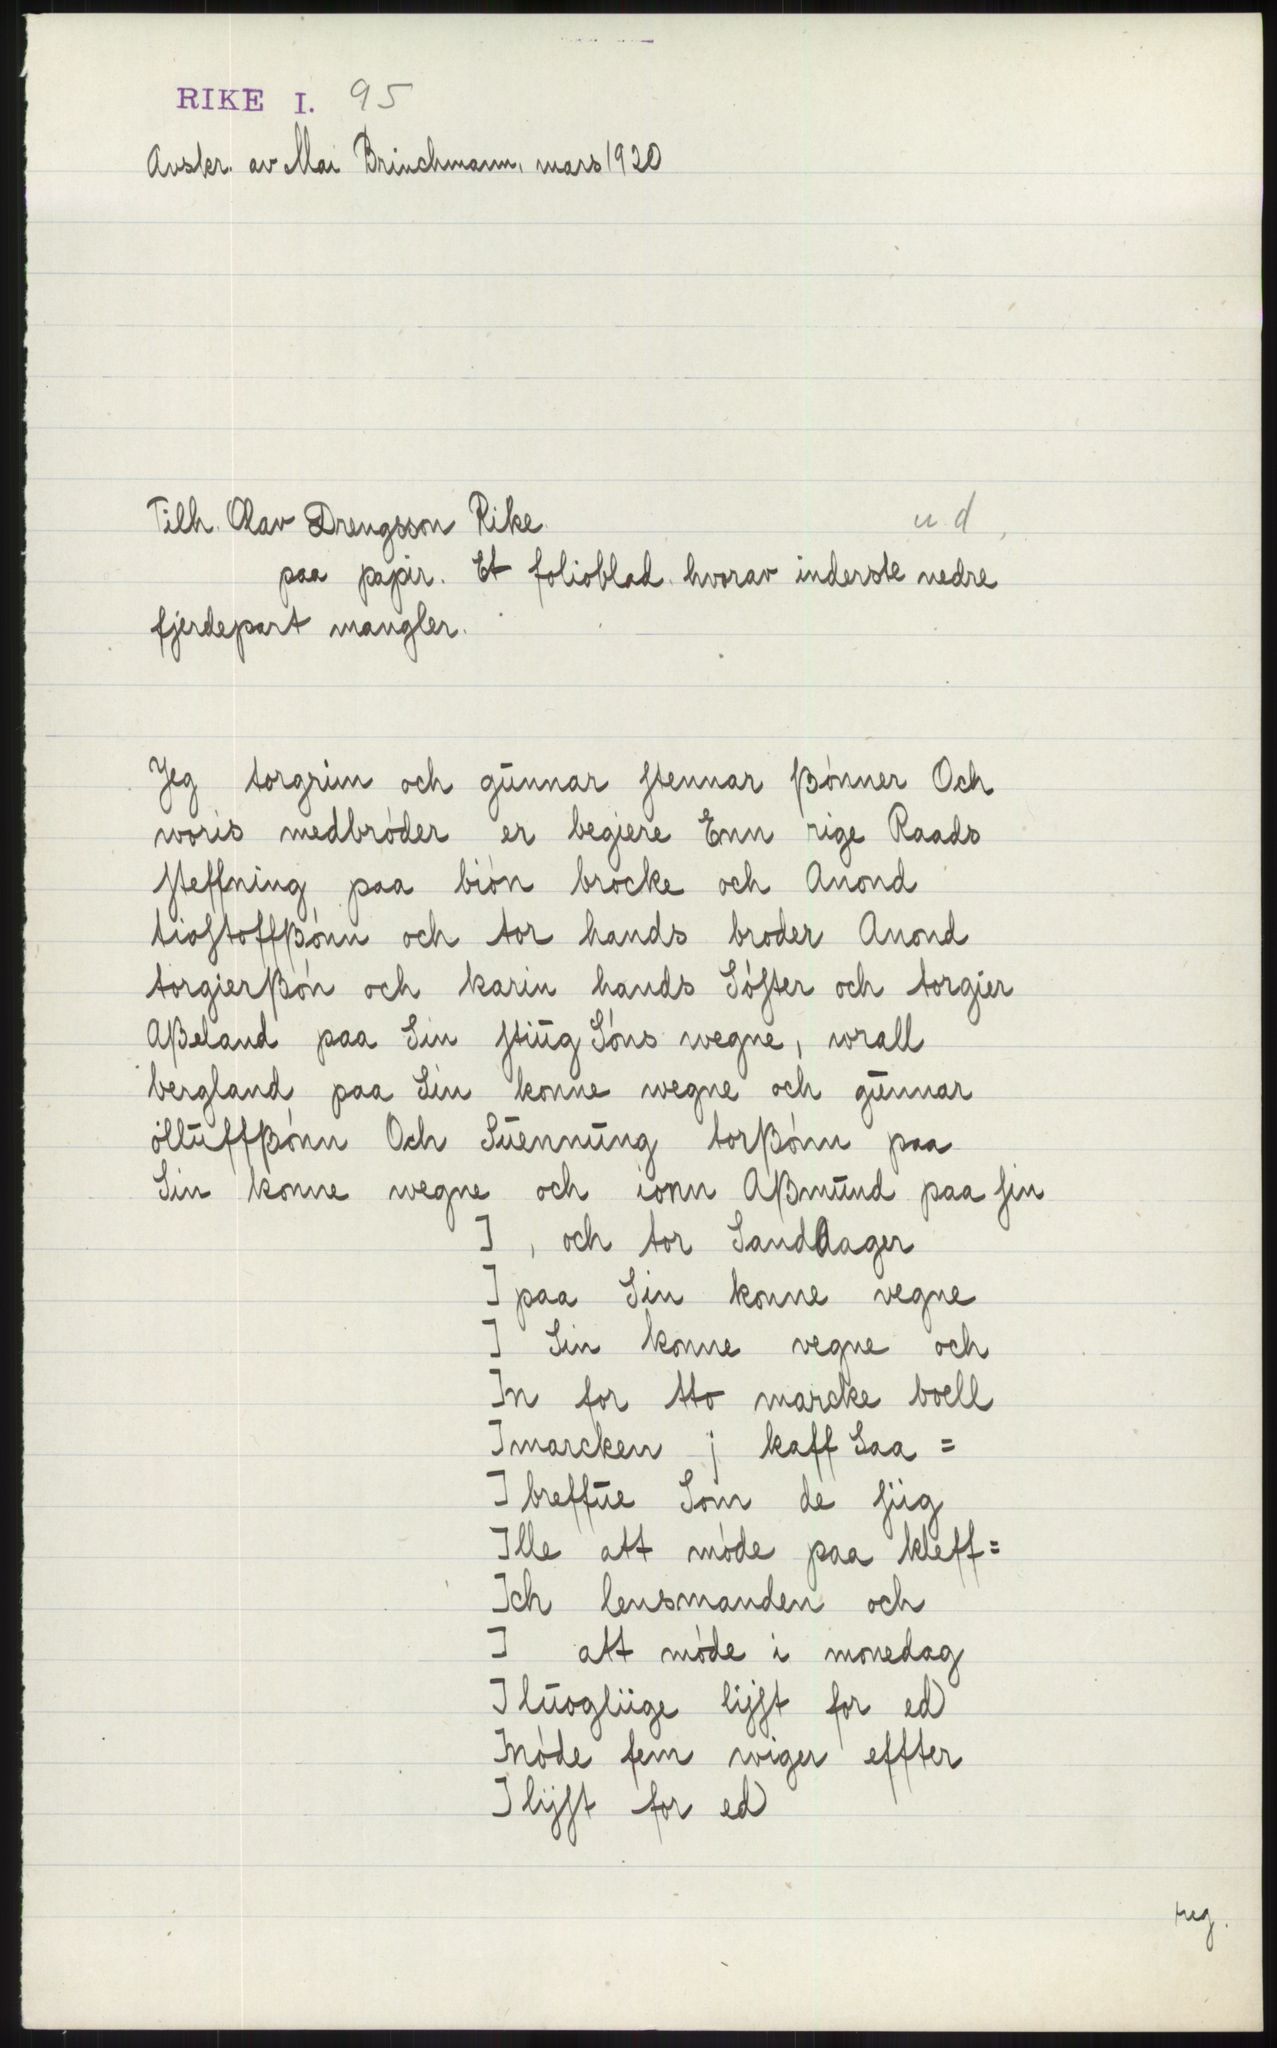 RIKE I. 95
Avskr. av Mai Brinchmann, mars 1920
Tilh. Olav Drengsson Rike. u. d.
paa papir. Et folioblad hvorav inderste nedre
fjerdepart mangler.
Jeg torgrim och gūnnar stennar ßónner Och
woris medbróder er begiere Enn rige Raads
steffning paa bión brocke och Anond
tiostoffßónn och tor hands broder Anond
torgierßón och karin hands Sóster och torgier
Aßeland paa Sin stiūg Sóns wegne, wrall
bergland paa Sin konne wegne och gūnnar
óllūffßónn Och Sūennūng torßónn paa
Sin konne wegne och ionn Aßmūnd paa sin
] , och tor SandAager
] paa Sin konne vegne
] Sin konne vegne och
]n for tto marcke boell
]marcken j kaff Saa =
] breffūe Som de siig
]lle att móde paa kleff=
]ch lensmanden och
] att móde i monedag
] lūogliige lijst for ed
]móde fem wiger effter
] lijst for ed
reg.